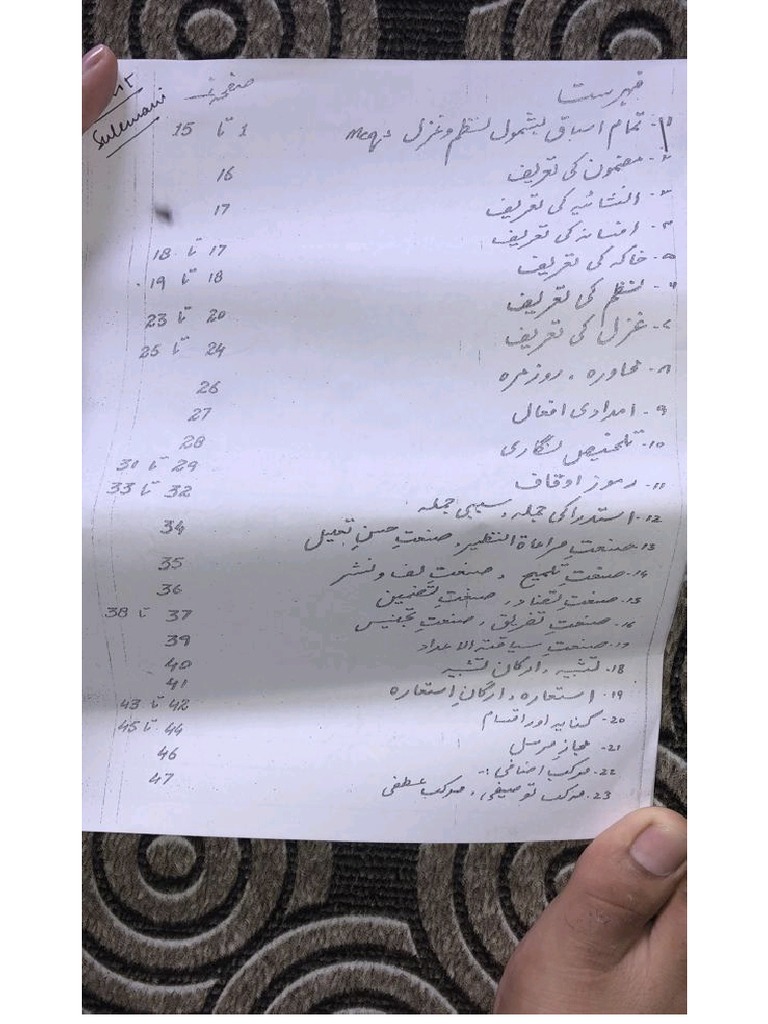 Suleman
فہرست صفحہ
1۔ تمام اسباق بشمول نظم و غزل Mcqs 1 تا 15
2۔ مضمون کی تعریف 16
3۔ انشائیہ کی تعریف 17
4۔ افسانہ کی تعریف 17 تا 18
5۔ خاکہ کی تعریف 18 تا 19
6۔ نظم کی تعریف 20 تا 23
7۔ غزل کی تعریف 24 تا 25
8۔ محاورہ، روزمرہ 26
9۔ امدادی افعال 27
10۔ تلخیص نگاری 28
11۔ رموز اوقاف 29 تا 30
12۔ استدراکی جملہ، سببی جملہ 32 تا 33
13۔ صنعتِ مراعاۃ النظیر، صنعتِ حسنِ تعلیل 34
14۔ صنعتِ تلمیح، صنعتِ لف و نشر 35
15۔ صنعتِ تضاد، صنعتِ تضمین 36
16۔ صنعتِ تفریق، صنعتِ تجنیس 37 تا 38
17۔ صنعتِ سیاقتہ الاعداد 39
18۔ تشبیہ، ارکان تشبیہ 40
41
19۔ استعارہ، ارکانِ استعارہ 42 تا 43
20۔ کنایہ اور اقسام 44 تا 45
21۔ مجاز مرسل 46
22۔ مرکب اضافی :۔ 47
23۔ مرکب توصیفی، مرکب عطفی